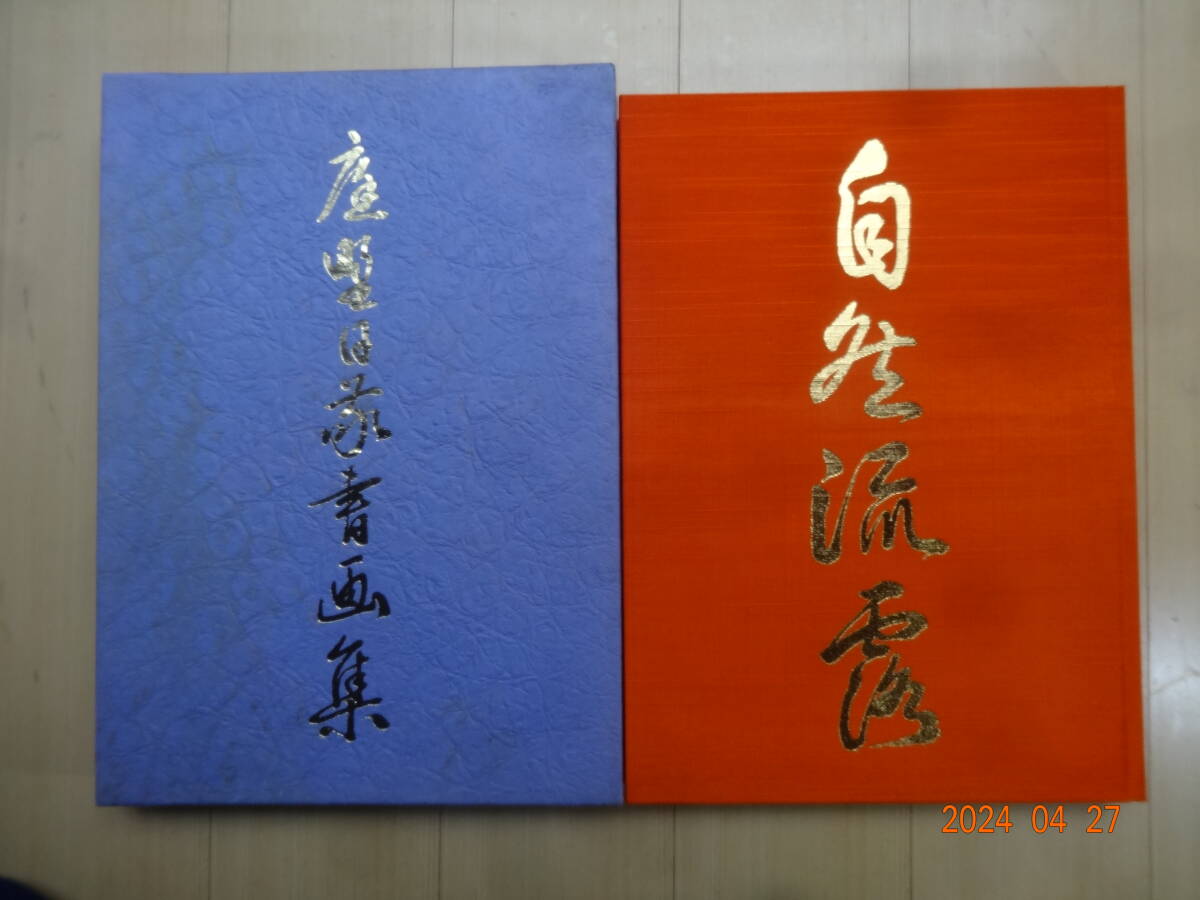 日書画集
自然流露
2024 04 27